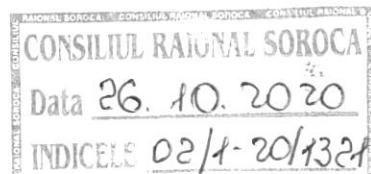 RAIONAL SOROCA * CONSILIUL RAIONAL SOROCA * CONSILIUL RAIONAL
CONSILIUL RAIONAL SOROCA
Data 26. 10. 2020
INDICELE 02/1-20/1321